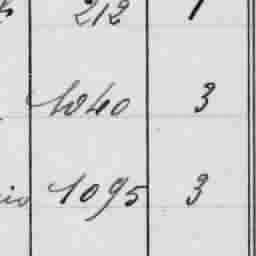 212 1
1040 3
1095 3